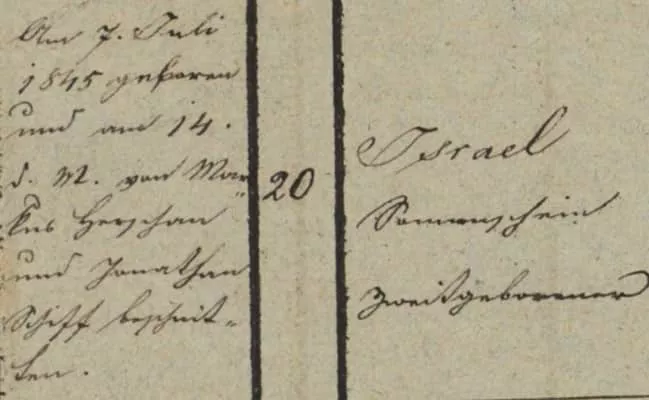 Am 7. Juli
1845 geboren
und am 14.
d. M. von Mar-
kus Herschan
und Jonathan
Schiff beschnit-
ten.
20
Israel
Sonnenschein
Zweitgeborener